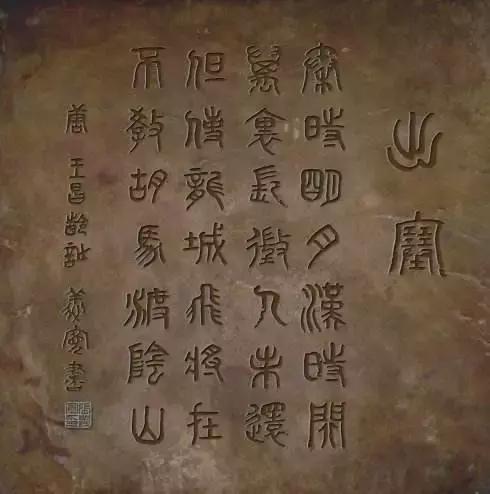 出塞
秦時明月漢時關
萬裏長徵人未還
但使龍城飛將在
不教胡馬渡陰山
唐 王昌齡詩 書